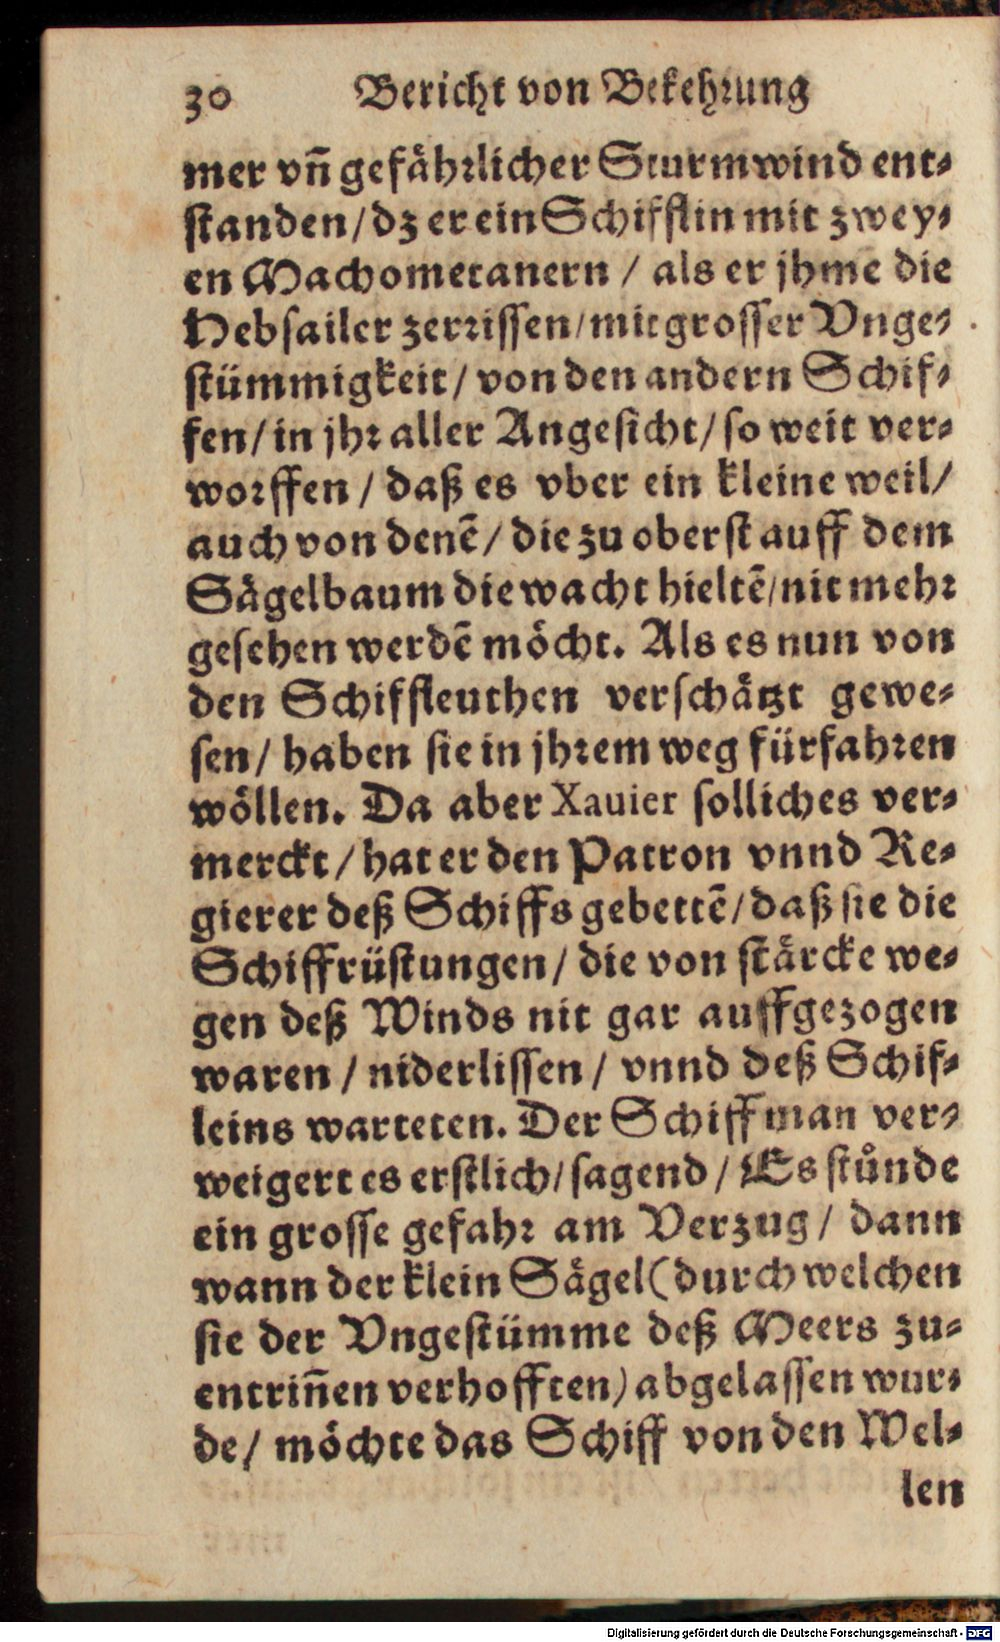 30 Bericht von Bekehrung
mer vñ gefährlicher Sturmwind ent-
standen/ dz er ein Schifflin mit zwey-
en Machometanern / als er jhme die
Hebsailer zerrissen/ mit grosser Vnge-
stümmigkeit/ von den andern Schif-
fen/ in jhr aller Angesicht/ so weit ver-
worffen / daß es vber ein kleine weil/
auch von denẽ/ die zu oberst auff dem
Sägelbaum die wacht hieltẽ/ nit mehr
gesehen werdẽ möcht. Als es nun von
den Schiffleuthen verschätzt gewe-
sen/ haben sie in jhrem weg fürfahren
wöllen. Da aber Xauier solliches ver-
merckt/ hat er den Patron vnnd Re-
gierer deß Schiffs gebettẽ/ daß sie die
Schiffrüstungen/ die von stärcke we-
gen deß Winds nit gar auffgezogen
waren / niderlissen/ vnnd deß Schif-
leins warteten. Der Schiffman ver-
weigert es erstlich/ sagend / Es stůnde
ein grosse gefahr am Verzug/ dann
wann der klein Sägel (durch welchen
sie der Vngestümme deß Meers zu-
entriñen verhofften) abgelassen wur-
de/ möchte das Schiff von den Wel-
len
Digitalisierung gefördert durch die Deutsche Forschungsgemeinschaft - DFG